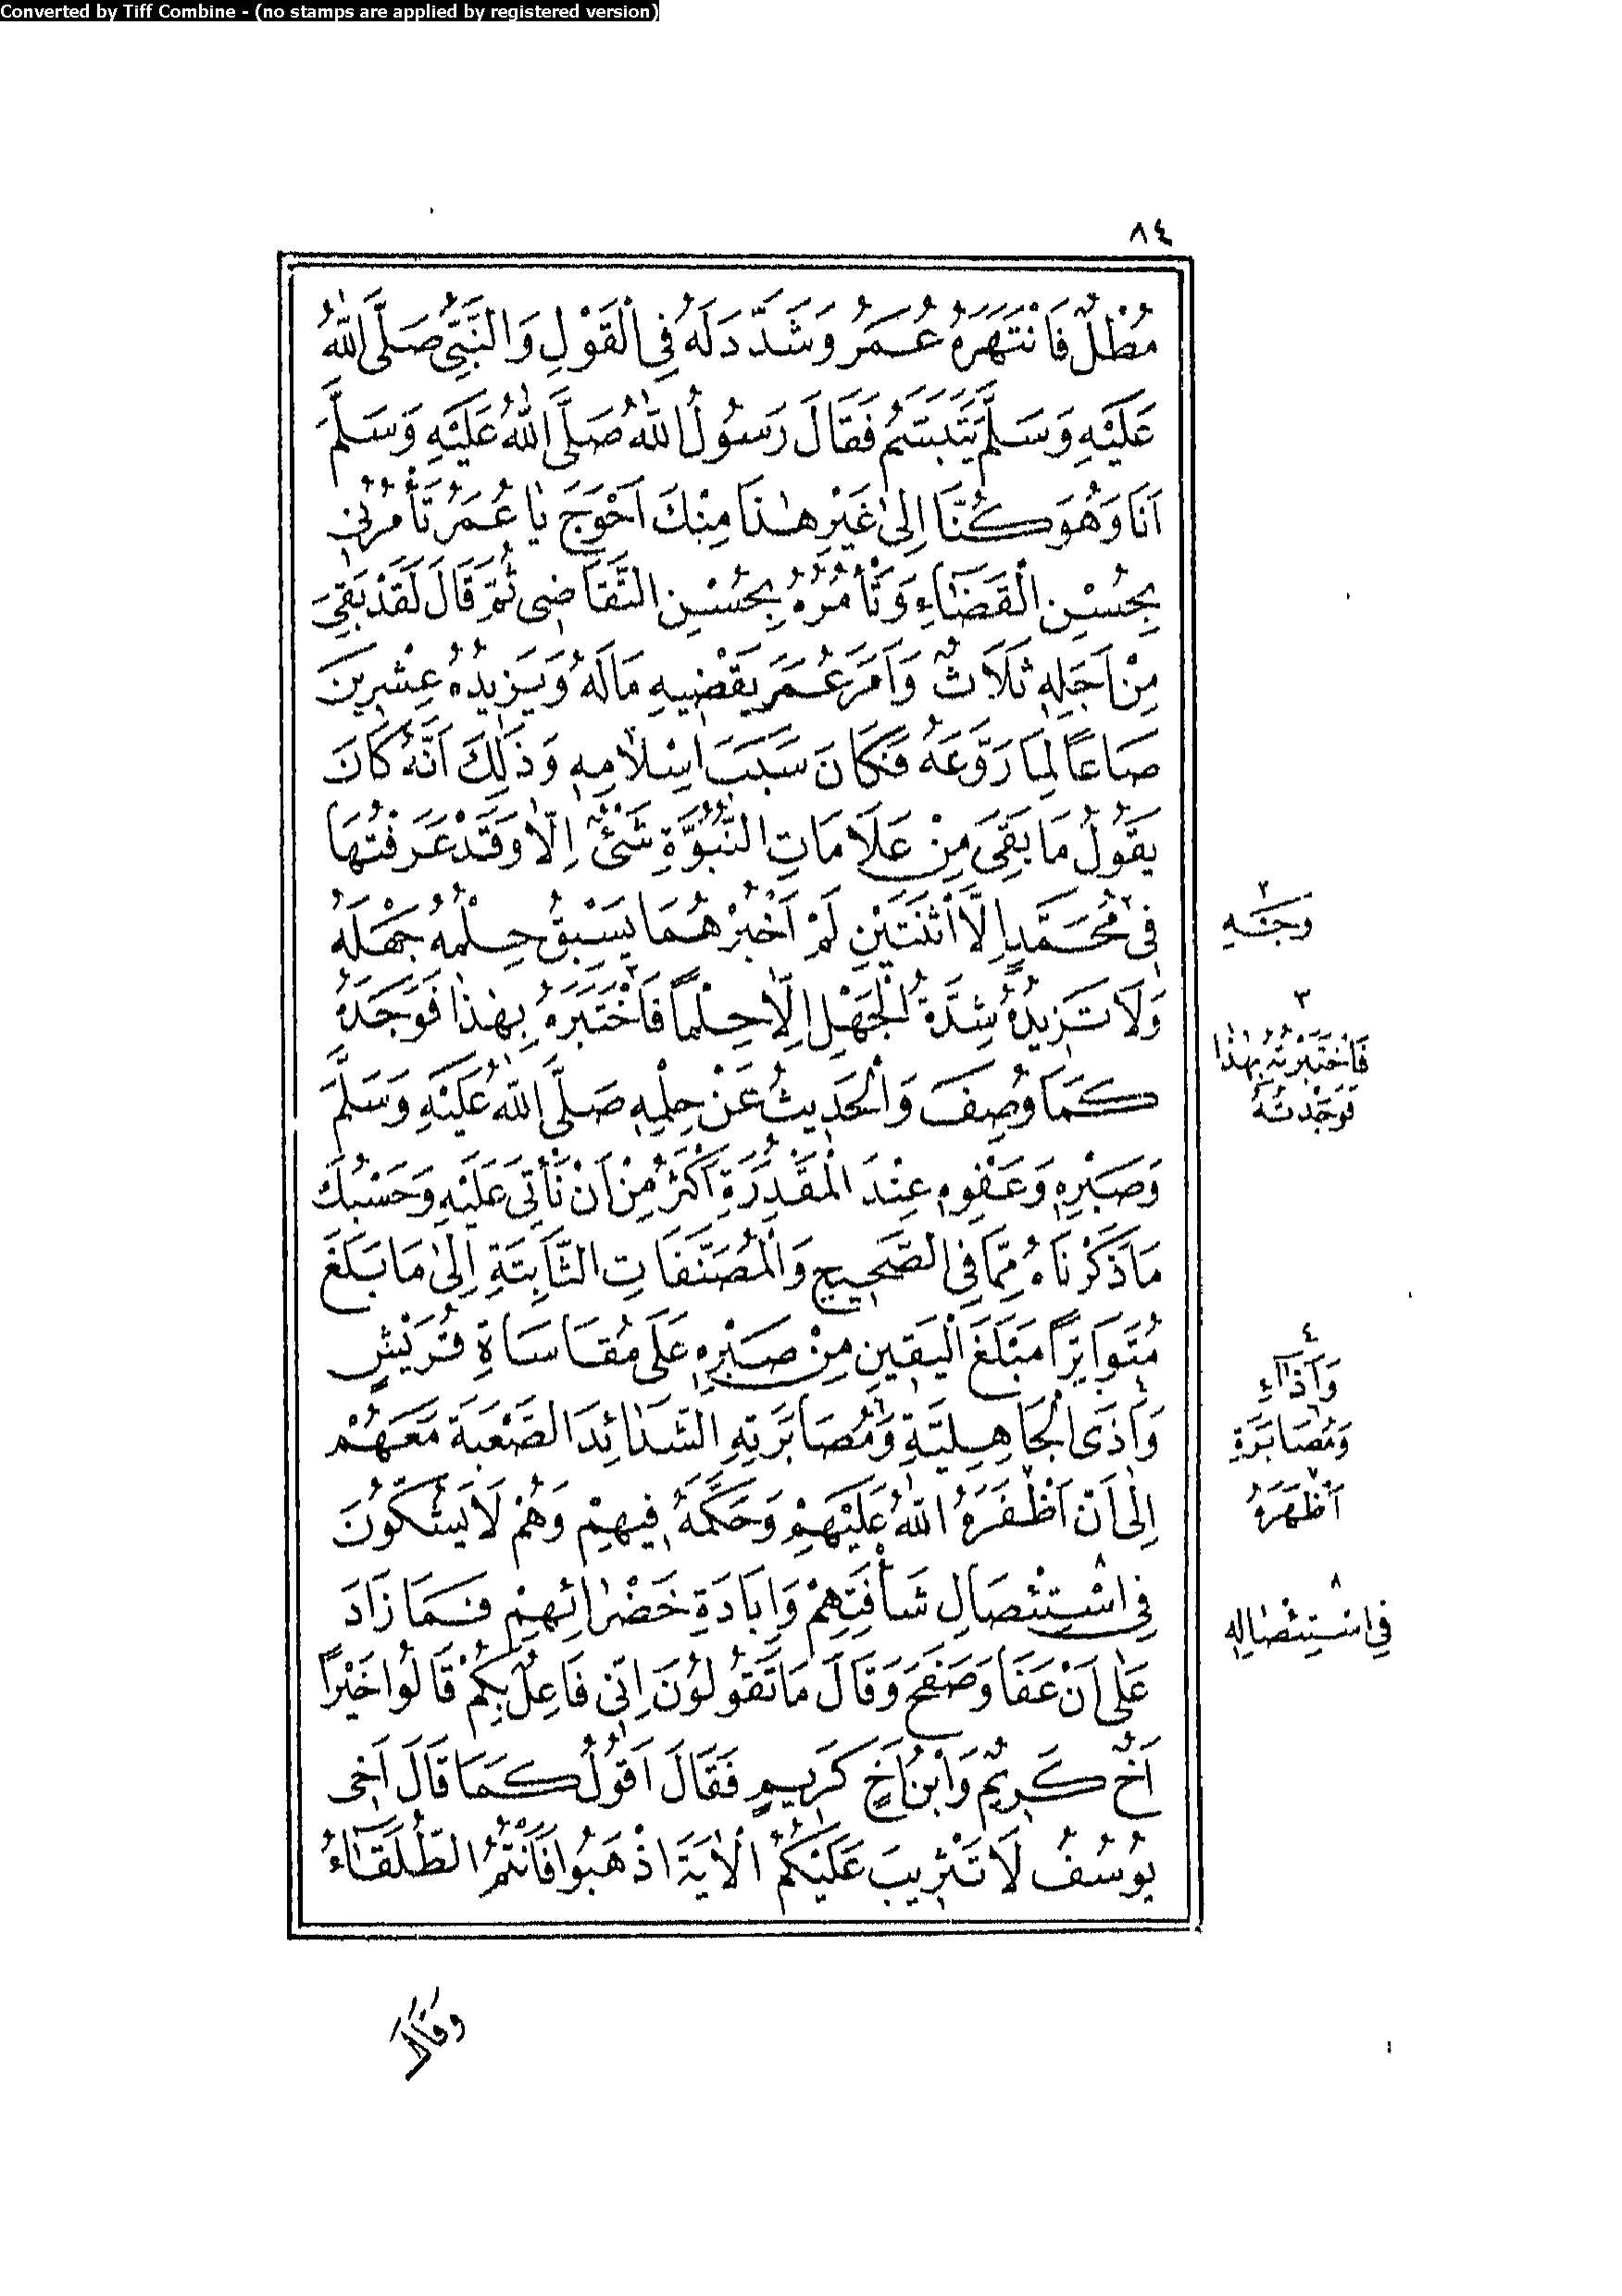 Converted by Tiff Combine - (no stamps are applied by registered version)
٨٤
مُطْلٌ فَانْتَهَرَهُ عُمَرُ وَشَدَّدَ لَهُ فِى الْقَوْلِ وَالنَّبِىُّ صَلَّى اللّٰهُ
عَلَيْهِ وَسَلَّمَ يَتَبَسَّمُ فَقَالَ رَسُولُ اللّٰهِ صَلَّى اللّٰهُ عَلَيْهِ وَسَلَّمَ
اَنَا وَهُوَ كُنَّا اِلٰى غَيْرِ هٰذَا مِنْكَ اَحْوَجَ يٰا عُمَرُ تَأْمُرُنِى
بِحُسْنِ الْقَضَاءِ وَتَأْمُرُهُ بِحُسْنِ التَّقَاضِى ثُمَّ قَالَ لَقَدْ بَقِىَ
مِنْ اَجَلِهِ ثَلَاثٌ وَاَمَرَ عُمَرَ يَقْضِيهِ مَالَهُ وَيَزِيدُهُ عِشْرِينَ
صَاعًا لِمَا رَوَّعَهُ فَكَانَ سَبَبَ اِسْلَامِهِ وَذٰلِكَ اَنَّهُ كَانَ
يَقُولُ مَا بَقِىَ مِنْ عَلَامَاتِ النُّبُوَّةِ شَىْءٌ اِلَّا وَقَدْ عَرَفْتُهَا
فِى مُحَمَّدٍ اِلَّا اثْنَتَيْنِ لَمْ اَخْبُرْهُمَا يَسْبِقُ حِلْمُهُ جَهْلَهُ
وَلَا تَزِيدُهُ شِدَّةُ الْجَهْلِ اِلَّا حِلْمًا فَاخْتَبَرَهُ بِهٰذَا فَوَجَدَهُ
كَمَا وُصِفَ وَالْحَدِيثُ عَنْ حِلْمِهِ صَلَّى اللّٰهُ عَلَيْهِ وَسَلَّمَ
وَصَبْرِهِ وَعَفْوِهِ عِنْدَ الْمَقْدِرَةِ اَكْثَرُ مِنْ اَنْ نَأْتِىَ عَلَيْهِ وَحَسْبُكَ
مَا ذَكَرْنَاهُ مِمَّا فِى الصَّحِيحِ وَالْمُصَنَّفَاتِ الثَّابِتَةِ اِلٰى مَا بَلَغَ
مُتَوَاتِرًا مَبْلَغَ الْيَقِينِ مِنْ صَبْرِهِ عَلَى مُقَاسَاةِ قُرَيْشٍ
وَاَذَى الْجَاهِلِيَّةِ وَمُصَابَرَتِهِ الشَّدَائِدَ الصَّعْبَةَ مَعَهُمْ
اِلٰى اَنْ اَظْفَرَهُ اللّٰهُ عَلَيْهِمْ وَحَكَّمَهُ فِيهِمْ وَهُمْ لَا يَشُكُّونَ
فِى اسْتِئْصَالِ شَأْفَتِهِمْ وَاِبَادَةِ خَضْرَائِهِمْ فَمَا زَادَ
عَلٰى اَنْ عَفَا وَصَفَحَ وَقَالَ مَا تَقُولُونَ اِنِّى فَاعِلٌ بِكُمْ قَالُوا خَيْرًا
اَخٌ كَرِيمٌ وَابْنُ اَخٍ كَرِيمٍ فَقَالَ اَقُولُ كَمَا قَالَ اَخِى
يُوسُفُ لَا تَثْرِيبَ عَلَيْكُمُ الْاٰيَةَ اذْهَبُوا فَاَنْتُمُ الطُّلَقَاءُ
٢
وَجْهِ
٣
فَاخْتَبَرْتُهُ بِهٰذَا
فَوَجَدْتُهُ
٤
وَاٰذَاءِ
٦
وَمُصَابَرَةِ
٧
اَظْهَرَهُ
٨
فِى اسْتِئْصَالِهِ
وَقَالَ